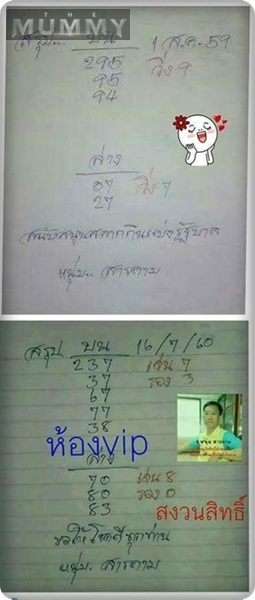 THE
MUMMY
สรุป.. บน 1 ส.ค. 59
295 วิ่ง 9
95
94
ล่าง
07 วิ่ง 7
27
สนับสนุนสลากกินแบ่งรัฐบาล
หนุ่ม.. สารคาม
สรุป บน 16/7/60
237 เด่น 7
37 รอง 3
67
77
38
ห้องvip
ล่าง
70 เด่น 8
80 รอง 0
83
สงวนสิทธิ์
ขอให้โชคดีทุกท่าน
หนุ่ม.. สารคาม